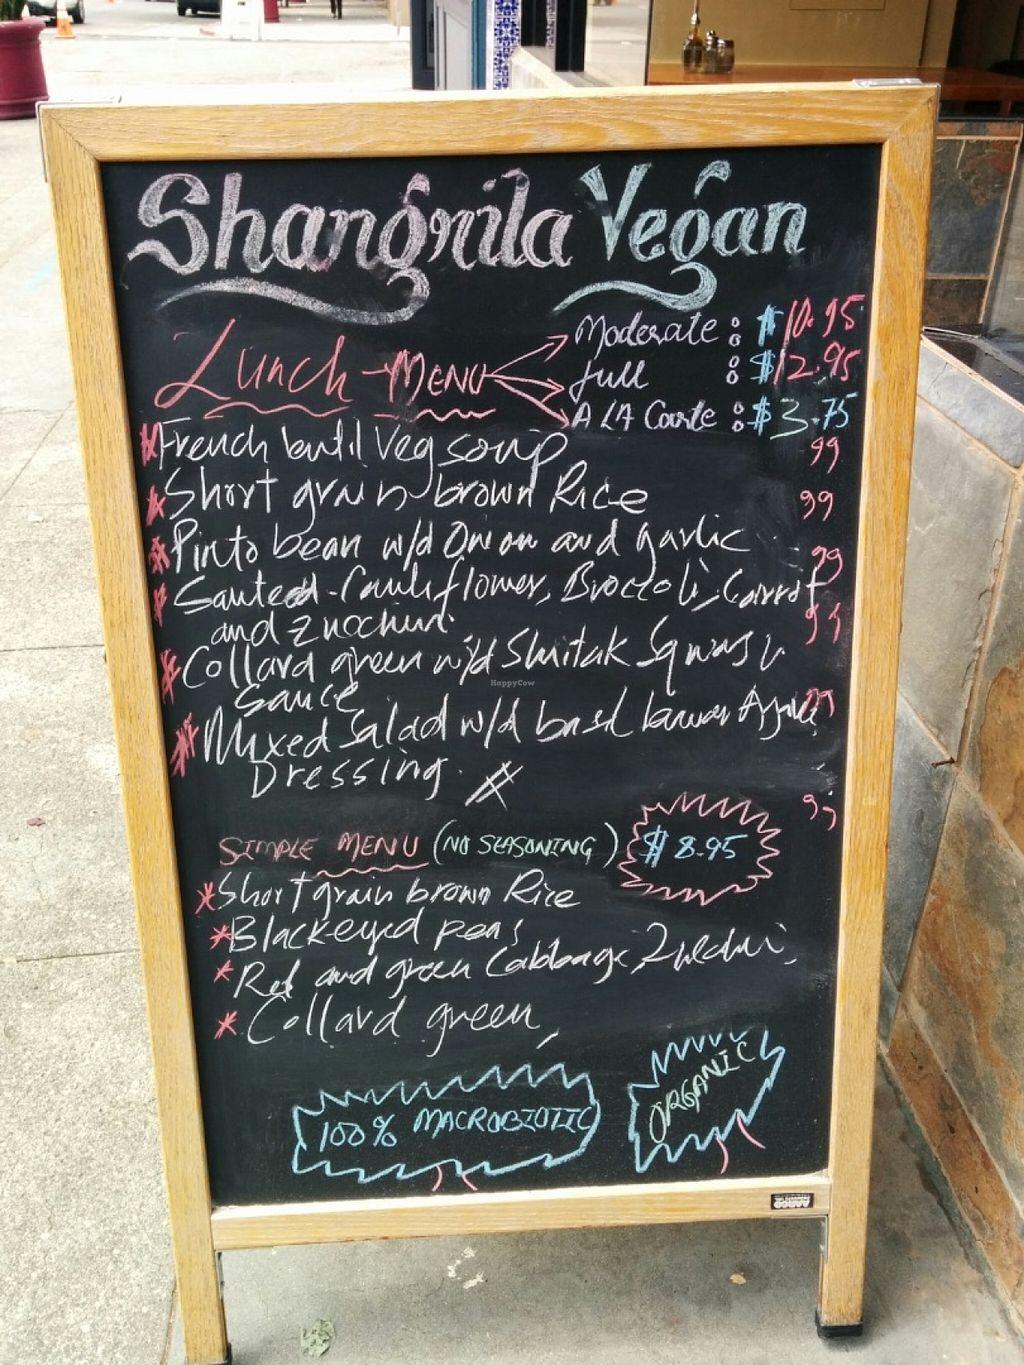 Shangrila Vegan
Lunch Menu
Moderate : $10.95
full : $12.95
A LA Carte : $3.75
*French lentil Veg soup 99
*Short grain brown Rice 99
*Pinto bean w/d Onion and garlic 99
*Sauteed - Cauliflower, Broccoli, Carrot 99
and
*Collard green w/d Squash
Sauce
*Mixed Salad w/d basil
Dressing
SIMPLE MENU (NO SEASONING) $8.95
*Short grain brown Rice
*Blackeyed peas
*Red and green Cabbage,
*Collard green,
100% MACROBIOTIC
ORGANIC
HappyCow